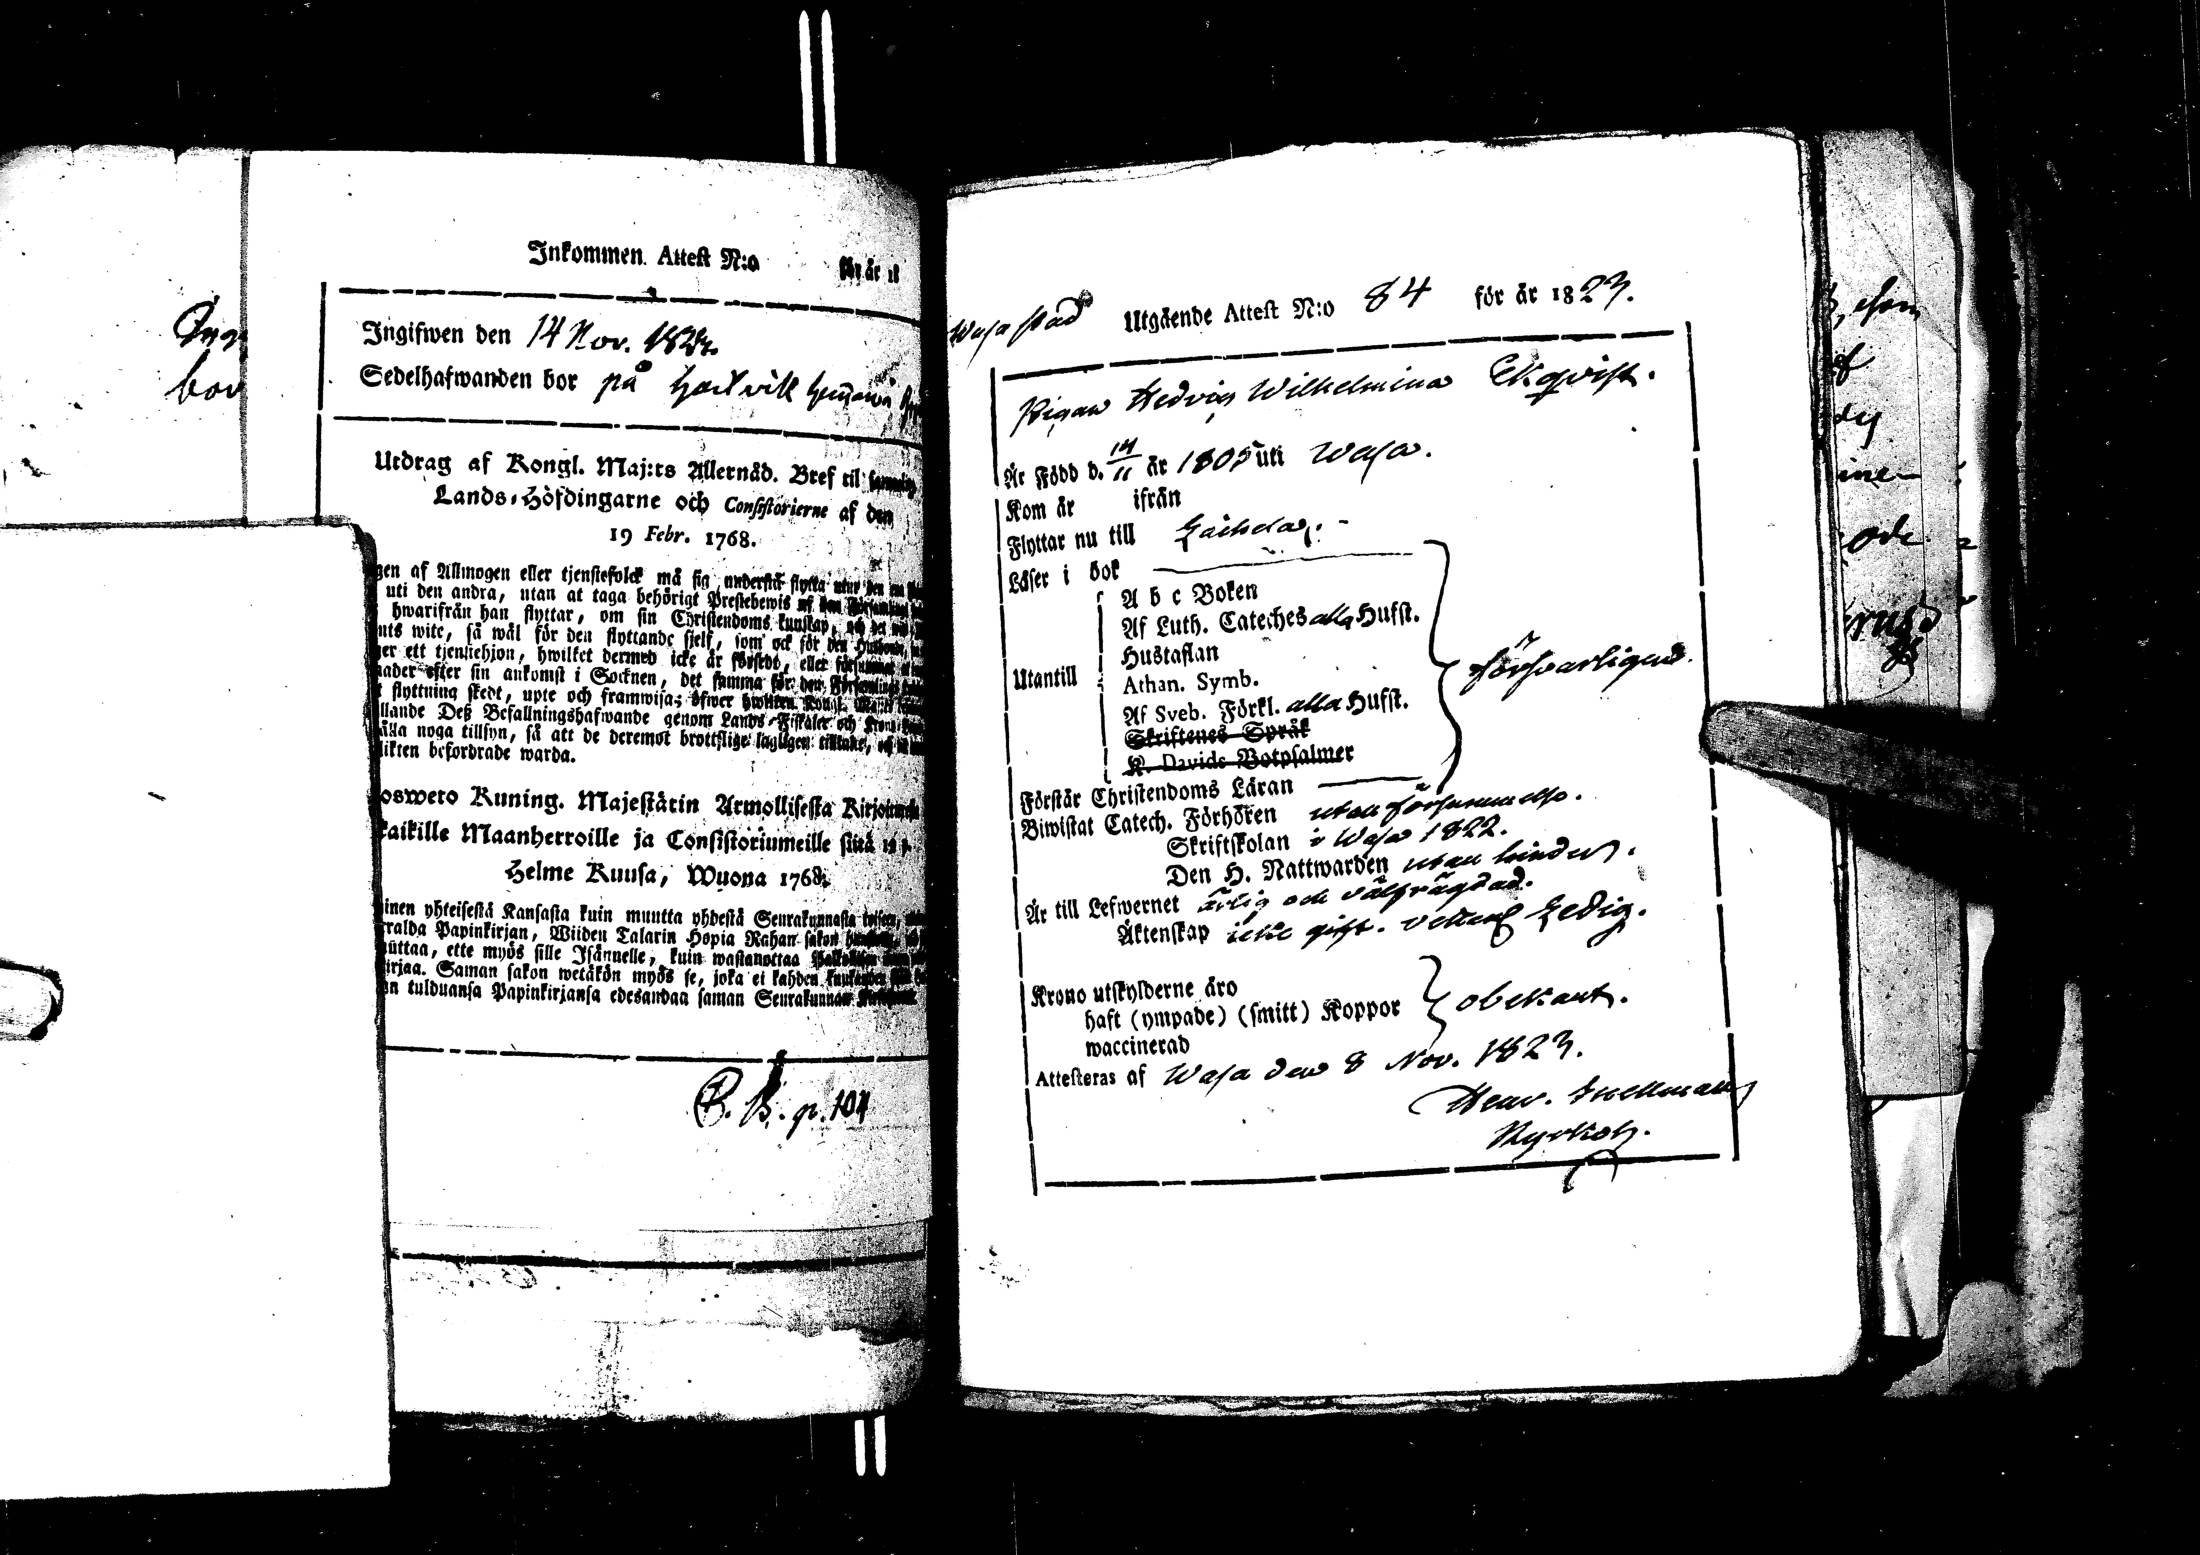 Inkommen. Attest N:o för år 18
Ingifwen den 14 Nov. 1823.
Sedelhafwanden bor på
Utdrag af Kongl. Maj:ts Allernåd. Bref til samtelige
Lands-Höfdingarne och Consistorierne af den
19 Febr. 1768.
gen af Allmogen eller tjenstefolck må sig understå flytta utur den
uti den andra, utan at taga behörigt Prestebewis af
hwarifrån han flyttar, om sin Christendoms kunskap, och
nts wite, så wäl för den flyttande sjelf, som ock för den Husbonde
er ett tjenstehjon, hwilket dermed icke är försedt, eller försummar
nader efter sin ankomst i Socknen, det samma för den Församlings
flyttning skedt, upte och framwisa; öfwer hwilken Kongl. Maj:ts
llande Deß Befallningshafwande genom Lands-Fiskaler och Krono
älla noga tillsyn, så att de deremot brottslige lagligen tilltalte, och
likten befordrade warda.
osweto Kuning. Majestätin Armollisesta Kirjoituxesta
kaikille Maanherroille ja Consistoriumeille siitä 19 p.
Helme Kuusa, Wuona 1768.
inen yhteisestä Kansasta kuin muutta yhdestä Seurakunnasta toiseen,
ralda Papinkirjan, Wiiden Talarin Hopia Rahan sakon
uuttaa, ette myös sille Isännelle, kuin wastanottaa
irjaa. Saman sakon wetäkön myös se, joka ei kahden kuukauden
n tulduansa Papinkirjansa edesandaa saman Seurakunnan
C. B. p. 104
Wasa stad Utgående Attest N:o 84 för år 1823.
Pigan Hedvig Wilhelmina Ekqvist.
Är Född d. 14/11 år 1805 uti Wasa.
Kom år ifrån
Flyttar nu till
Läser i bok
A b c Boken
Af Luth. Cateches alla Hufst.
Hustaflan
Utantill Athan. Symb. försvarligen.
Af Sveb. Förkl. alla Hufst.
Skriftenes Språk
K. Davids Botpsalmer
Förstår Christendoms Läran
Biwistat Catech. Förhören utan försummelse.
Skriftskolan i Wasa 1822.
Den H. Nattwarden utan hinder.
Är till Lefwernet ärlig och välfrägdad.
Äktenskap icke gift. veterl. Ledig.
Krono utskylderne äro
haft (ympade) (smitt) Koppor obekant.
waccinerad
Attesteras af Wasa den 8 Nov. 1823.
Henr. Snellman